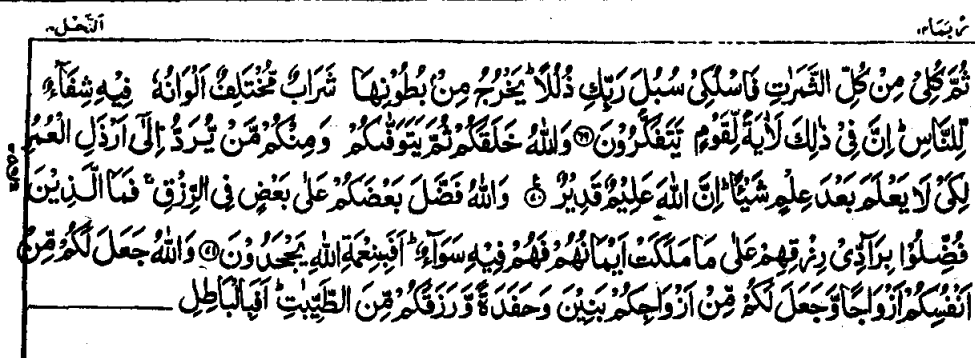 ربما ۱۴ النحل ۱۶
ثُمَّ كُلِىْ مِنْ كُلِّ الثَّمَرٰتِ فَاسْلُكِىْ سُبُلَ رَبِّكِ ذُلُلًا ؕ يَخْرُجُ مِنْ بُطُوْنِهَا شَرَابٌ مُّخْتَلِفٌ اَلْوَانُهٗ فِيْهِ شِفَآءٌ
لِّلنَّاسِ ؕ اِنَّ فِىْ ذٰلِكَ لَاٰيَةً لِّقَوْمٍ يَّتَفَكَّرُوْنَ ﴿۶۹﴾ وَاللّٰهُ خَلَقَكُمْ ثُمَّ يَتَوَفّٰىكُمْ وَمِنْكُمْ مَّنْ يُّرَدُّ اِلٰٓى اَرْذَلِ الْعُمُرِ
لِكَىْ لَا يَعْلَمَ بَعْدَ عِلْمٍ شَيْـًٔا ؕ اِنَّ اللّٰهَ عَلِيْمٌ قَدِيْرٌ ﴿۷۰﴾ وَاللّٰهُ فَضَّلَ بَعْضَكُمْ عَلٰى بَعْضٍ فِى الرِّزْقِ ۚ فَمَا الَّذِيْنَ
فُضِّلُوْا بِرَآدِّىْ رِزْقِهِمْ عَلٰى مَا مَلَكَتْ اَيْمَانُهُمْ فَهُمْ فِيْهِ سَوَآءٌ ؕ اَفَبِنِعْمَةِ اللّٰهِ يَجْحَدُوْنَ ﴿۷۱﴾ وَاللّٰهُ جَعَلَ لَكُمْ مِّنْ
اَنْفُسِكُمْ اَزْوَاجًا وَّجَعَلَ لَكُمْ مِّنْ اَزْوَاجِكُمْ بَنِيْنَ وَحَفَدَةً وَّرَزَقَكُمْ مِّنَ الطَّيِّبٰتِ ؕ اَفَبِالْبَاطِلِ